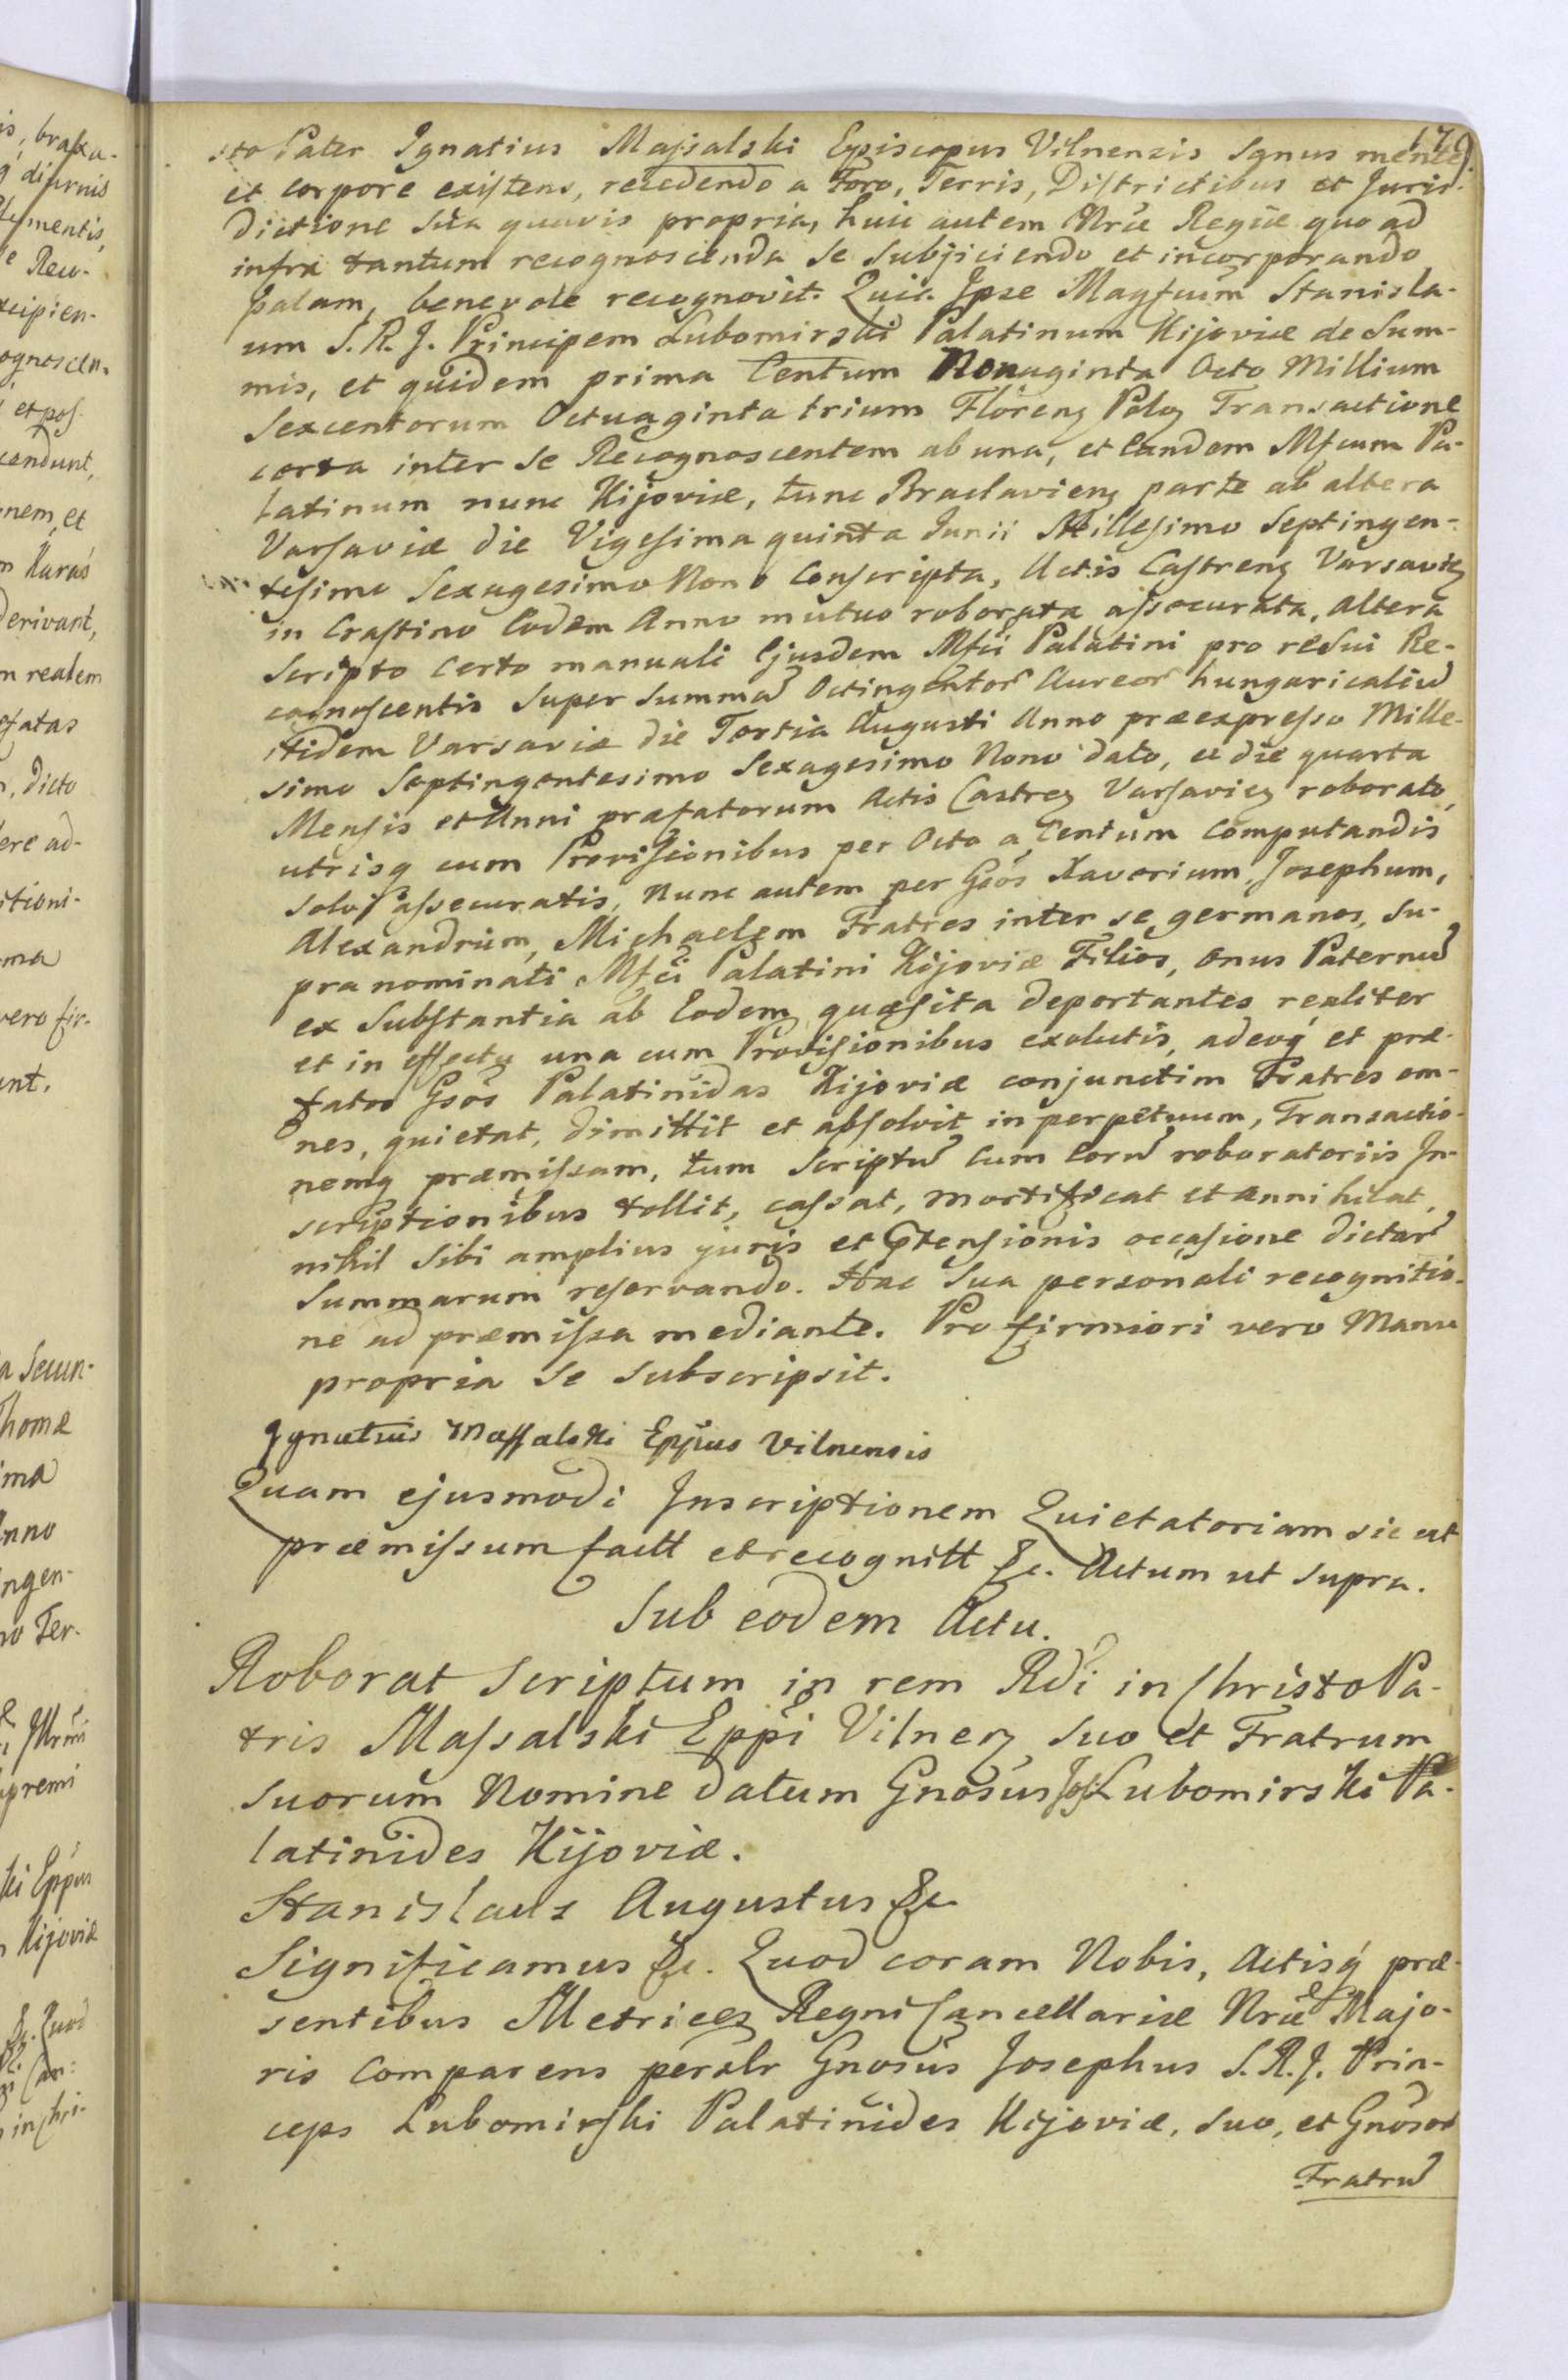 sto Pater Ignatius Massalski Episcopus Vilnensis Sanus mente
et corpore existens, recedendo a Foro, Terris, Districtibus et Juris-
dictione sua quavis propria, huic autem Nrae Regiae quo ad
infra tantum recognoscenda se subjiciendo et incorporando
palam, benevole recognovit. Quia Ipse Magfcum Stanisla-
um S. R. J. Principem Lubomirski Palatinum Kijoviae de Sum-
mis, et quidem prima Centum Nonaginta Octo Millium
Sexcentorum Octuaginta trium Florenz Poloz Transactione
certa inter se Recognoscentem ab una, et Eundem Mfcum Pa-
latinum nunc Kijoviae, tunc Braclavienz parte ab altera
Varsaviae die Vigesima quinta Junii Millesimo Septingen-
tesimo Sexagesimo Nono Conscripta, Actis Castrenz Varsaviez
in Crastino Eodem Anno mutuo roborata assecurata, altera
Scripto Certo manuali Ejusdem Mfci Palatini pro re sui Re-
cognoscentis super summa Octingentor Aureor hungaricaliu
itidem Varsaviae die Tertia Augusti Anno praeexpresso Mille-
simo Septingentesimo Sexagesimo Nono dato, et die quarta
Mensis et Anni praefatorum Actis Castrez Varsaviez roborato,
utrisq cum Provisionibus per Octo a Centum Computandis
solvi assecuratis, Nunc autem per Gsos Xaverium, Josephum,
Alexandrum, Michaelem Fratres inter se germanos, su-
pra nominati Mfci Palatini Kijoviae Filios, onus Paternu
ex Substantia ab Eodem quaesita deportantes realiter
et in effectu una cum Provisionibus exolutis, adeoq et prae-
fatos Gsos Palatinidas Kijoviae conjunctim Fratres om-
nes, quietat, dimittit et absolvit in perpetuum, Transactio-
nemq praemissam, tum Scriptu cum Eoru roboratoriis In-
scriptionibus tollit, cassat, mortificat et annihilat,
nihil sibi amplius juris et ptensionis occasione dictar
Summarum reservando. Hac sua personali recognitio-
ne ad praemissa mediante. Pro firmiori vero Manu
propria se subscripsit.
Ignatius Massalski Eppus Vilnensis
Quam ejusmodi Inscriptionem Quietatoriam sic ut
praemissum factt et recognitt &c. Actum ut supra.
Sub eodem Actu.
Roborat Scriptum in rem Rdi in Christo Pa-
tris Massalski Eppi Vilnez suo et Fratrum
suorum Nomine datum Gnosus Jos: Lubomirski Pa-
latinides Kijoviae.
Stanislaus Augustus &c
Significamus &c. Quod coram Nobis, Actisq prae-
sentibus Metrices Regni Cancellariae Nrae Majo-
ris Comparens peralr Gnosus Josephus S. R. J. Prin-
ceps Lubomirski Palatinides Kijoviae, suo, et Gnosor
Fratru